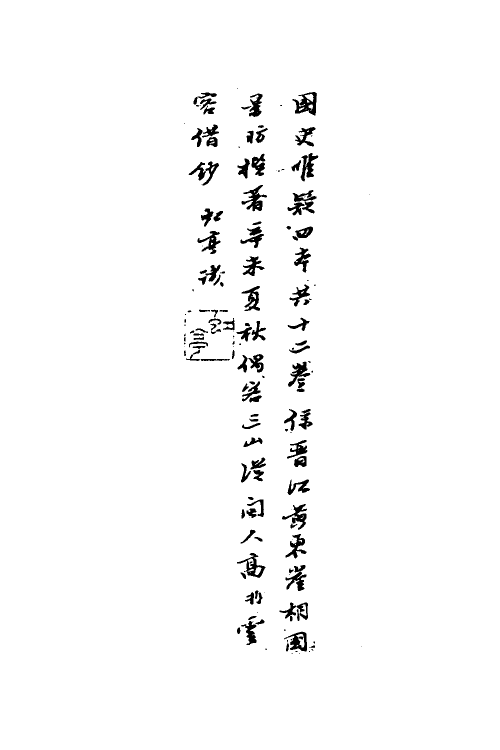 國史唯疑四本共十二卷係晉江黃東崖相國
景昉撰著辛未夏秋偶客三山從閩人高兆雲
客借鈔 虹亭識
虹亭